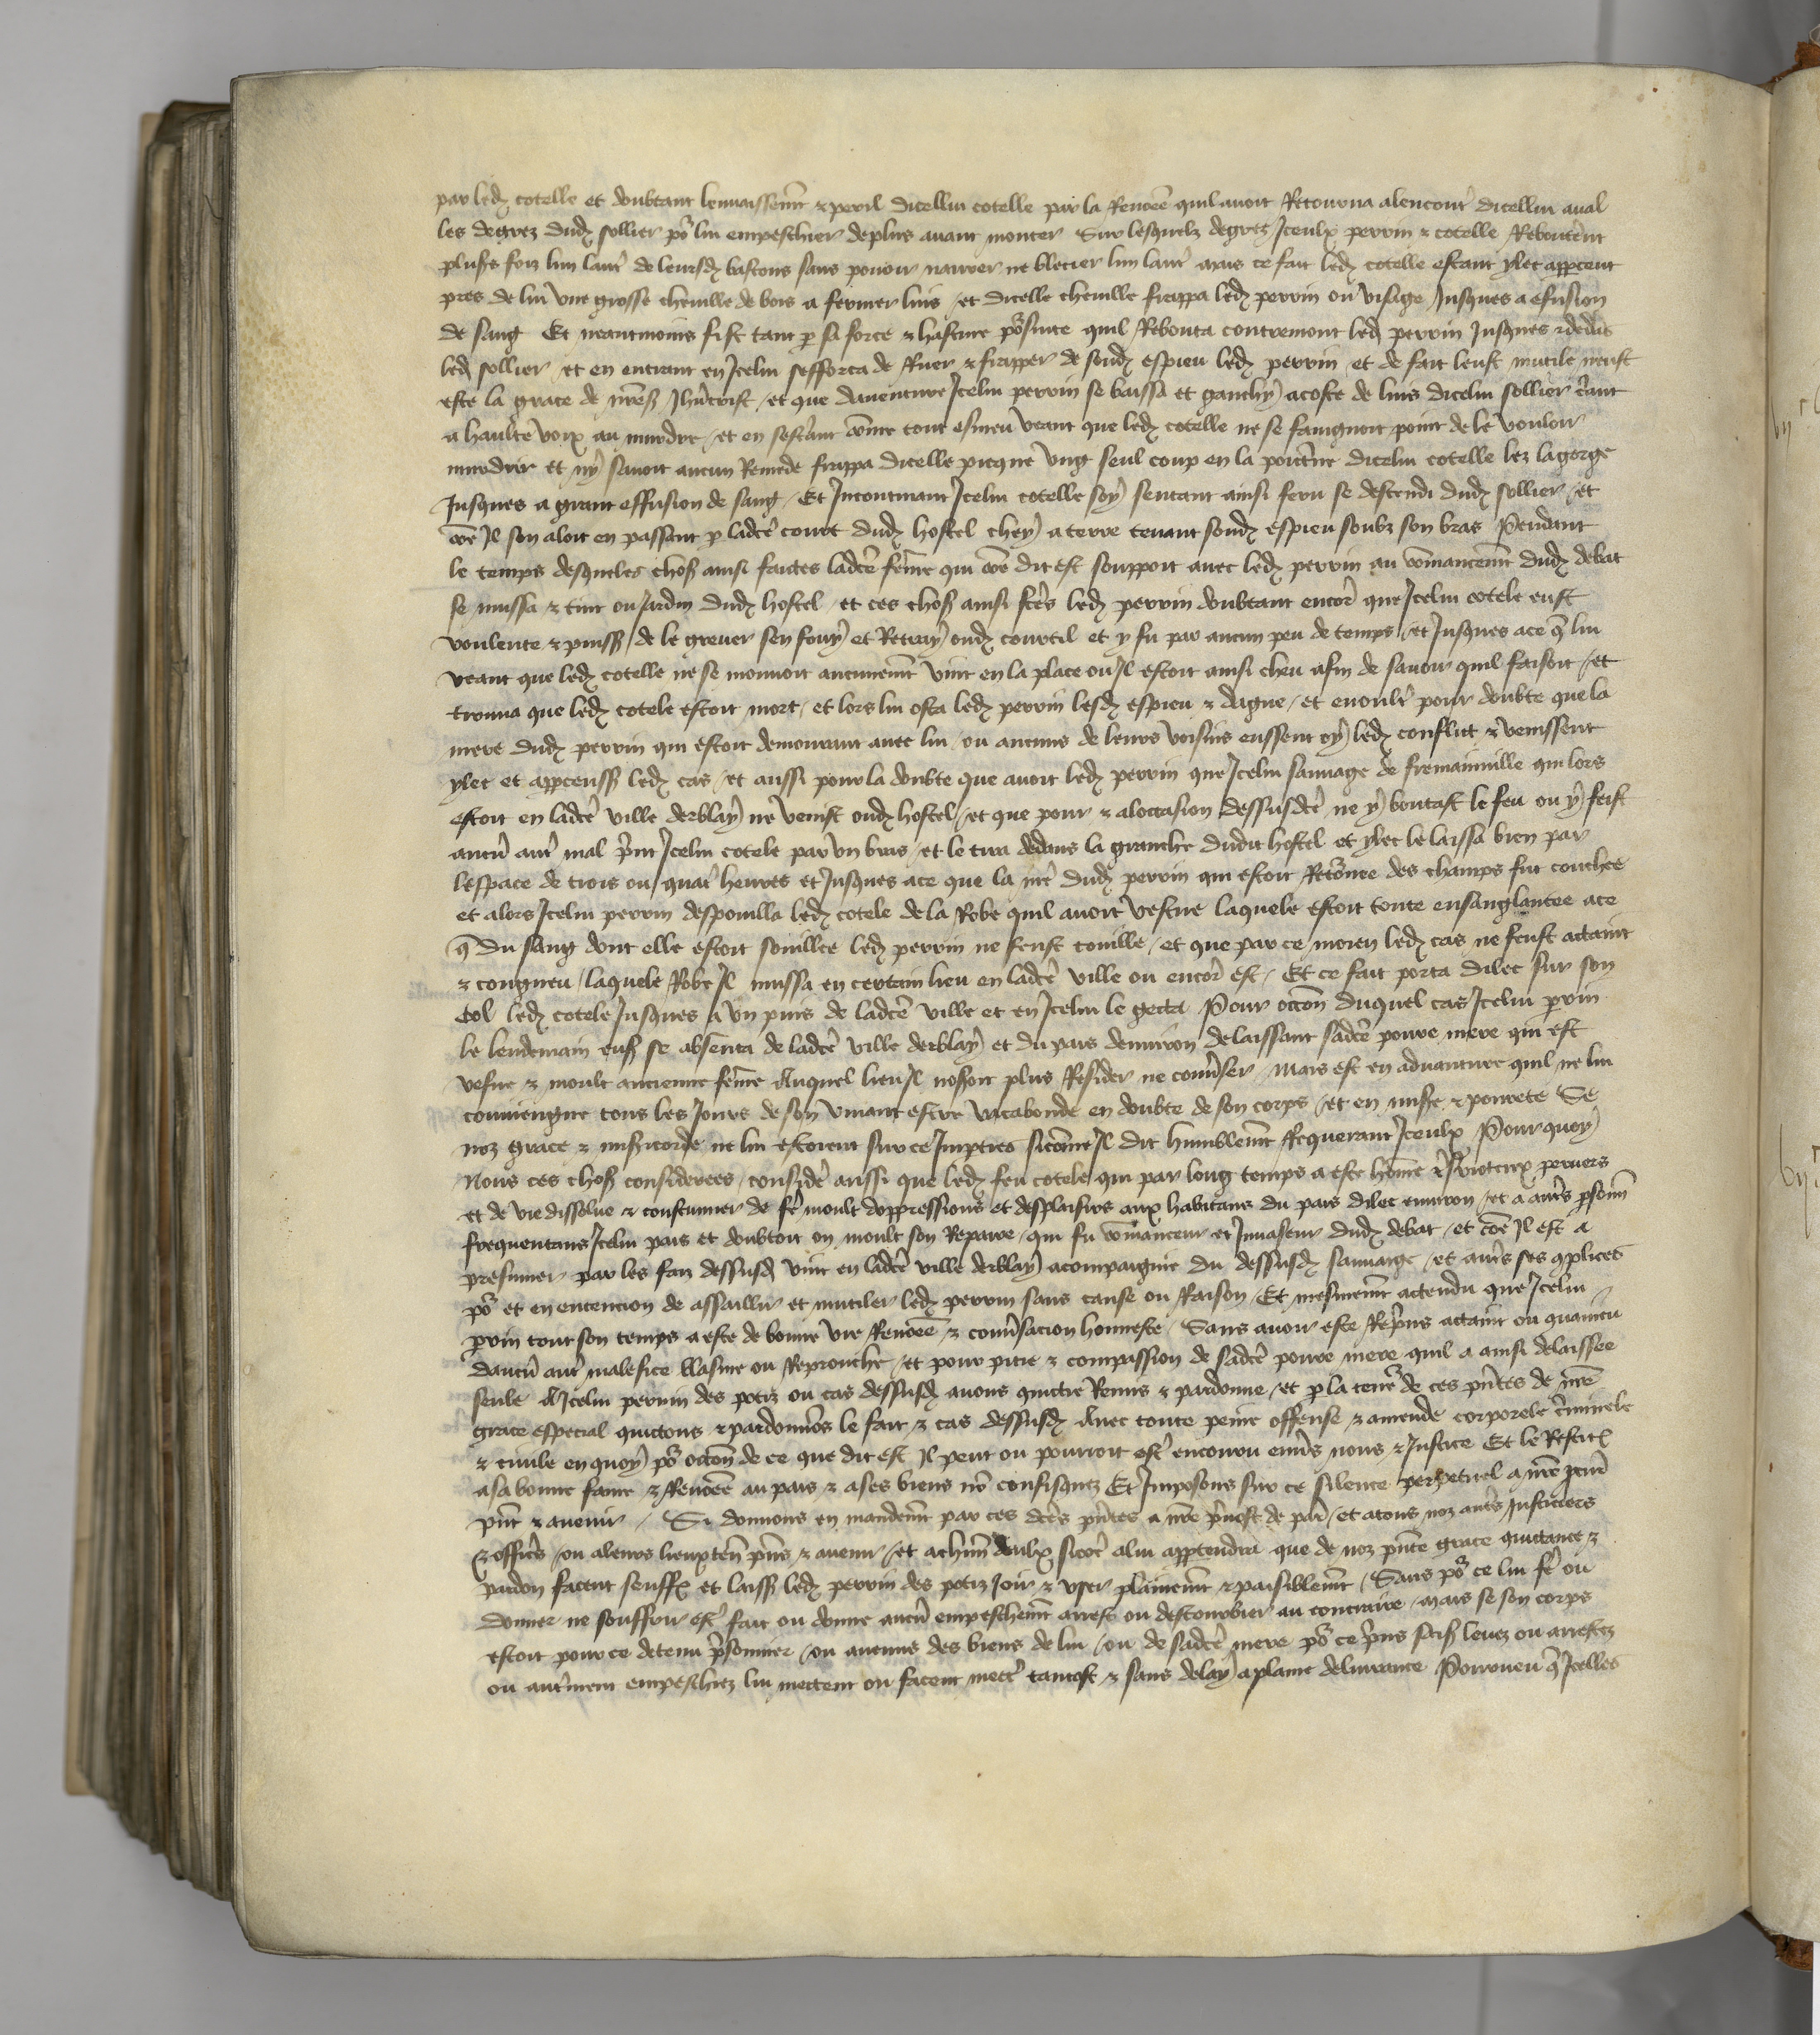 par led cotelle et doubtant lenvaissemt & peril dicellui cotelle par la renõee quil avoit Retourna alencontr dicellui aval
les degrez dud sollier po lui empeschier deplus avant monter Sur lesquelz degrez Iceulx perrin & cotelle Rebouterent
plus foiz lun lautr de leursd bastons sans povoir navrer ne blecier lun lautr mais ce fait led cotelle estant ylec appceut
pres de lui une grosse cheville de bois a fermer luis / et dicelle cheville frappa led perrin ou visage Jusques a efusion
de sang Et neantmoins fist tant p sa force & hastive posuite quil Rebouta contremont led perrin Jusques dedens
led sollier / et en entrant en Icelui sefforca de Ruer & frapper de soud espieu led perrin / et de fait leust mutile neust
este la grace de nres Jhucrist / et que daventure Icelui perrin se baissa et ganchy acoste de luis dicelui sollier criant
a haulte voix au murdre / et en sescriant come tout esmeu veant que led cotelle ne se faingnoit point de le vouloir
murdrir et ny savoit aucun Remede frappa dicelle picque ung seul coup en la poictrine dicelui cotelle lez la gorge
Jusques a grant effusion de sang / Et Incontinant Icelui cotelle soy sentant ainsi feru se descendi dud sollier / et
coe Il sen aloit en passant p ladce court dud hostel chey a terre tenant sond espieu soubz son bras Pendant
le temps desqueles chos ainsi faictes ladce feme qui coe dit est souppoit avec led perrin au comancemt dud debat
se mussa & tint ou Jardin dud hostel / et ces chos ainsi fces led perrin doubtant encor que Icelui cotele eust
voulente & puiss de le grever sen fouy et Retray oud courtil et y fu par aucun peu de temps / et Jusques ace q lui
veant que led cotelle ne se mouvoit aucunemt vint en la place ou Il estoit ainsi cheu afin de savoir quil faisoit / et
trouva que led cotele estoit mort / et lors lui osta led perrin lesd espieu & dague / et enoultr pour doubte que la
mere dud perrin qui estoit demourant avec lui / ou aucuns de leurs voisins eussent oy led conflict & venissent
ylec et appceuss led cas / et aussi pour la doubte que avoit led perrin que Icelui sauvage de fremainville qui lors
estoit en ladce ville derblay ne venist oud hostel / et que pour & aloccasion dessusdce ne y boutast le feu ou y feist
aucu autr mal print Icelui cotele par un bras / et le tira dedans la granche dudit hostel et ylec le laissa bien par
lespace de trois ou quatr heures et Jusques ace que la mr dud perrin qui estoit Retornee des champs fut couchee
et alors Icelui perrin despouilla led cotele de la Robe quil avoit vestue laquele estoit toute ensanglantee ace
q du sang dont elle estoit souillee led perrin ne feust touille / et que par ce moien led cas ne feust actaint
& congneu / laquele Robe Il mussa en certain lieu en ladce ville ou encor est / Et ce fait porta dilec sur son
col led cotele Jusques a un puis de ladce ville et en Icelui le gecta Pour occon duquel cas Icelui prin
le lendemain ens se absenta de ladce ville derblay et du pais denviron delaissant sadce povre mere qui est
vesve & moult ancienne feme Auquel lieu Il nosoit plus Resider ne converser / Mais est en adventure quil ne lui
conviengne tous les Jours de son vivant estre vacabonde en doubte de son corps / et en misere & povrete Se
noz grace & misericorde ne lui estoient sur ce Impties sicome Il dit humblemt Requerant Iceulx Pour quoy
Nous ces chos considerees / consider aussi que led feu cotele qui par long temps a este home & Rioteux pervers
et de vie dissolue & coustumier de fe moult doppressions et desplaisirs aux habitans du pais dilec environ / et a autres psonn
frequentans Icelui pais et doubtoit on moult son Repaire / qui fu comanceur et Invaseur dud debat / et coe Il est a
presumer par les faiz dessusd vint en ladce ville derblay acompaignie du dessusd sauvage / et autrs ses complices
po et en entencion de assaillir et mutiler led perrin sans cause ou Raison / Et mesmemt actendu que Icelui
prin tout son temps a este de bonne vie Renõee & conversacion honneste / Sans avoir este Repris actaint ou quaincu
daucu autr malefice blasme ou Reprouche / et pour pitie & compassion de sadce povre mere quil a ainsi delaissee
seule A Icelui perrin des potiz ou cas dessusd avons quictie Remis & pardonne / et p la tenr de ces pntes de nre
grace especial quictons & pardonnons le fait & cas dessusd Avec toute peine offense & amende corporele criminele
& civile en quoy po occon de ce que dit est Il peut ou pourroit estr encouru envrs nous & Justice Et le Restit
a sa bonne fame & Renõee au pais & a ses biens no confisquez Et Imposons sur ce silence perpetuel a nre pcur
pnt & avenir / Si donnons en mandemt par ces dces pntes a nre prevost de paris / et atous noz autrs Justiciers
& officrs / ou aleurs lieuxten pns & avenir / et achun deulx sicoe alui apptendra que de noz pnte grace quictance &
pardon facent seuff et laiss led perrin des potiz Joir & user plainemt & paisiblemt / Sans po ce lui fe ou
donner ne souffrir estr fait ou donne aucu empeschemt arrest ou destourbier au contraire / Mais se son corps
estoit pour ce detenu prisonnier / ou aucuns des biens de lui / ou de sadce mere po ce prins saisis levez ou arrestez
ou autrment empeschiez lui mettent ou facent mectr tantost & sans delay aplaine delivrance Pourveu q Icelles